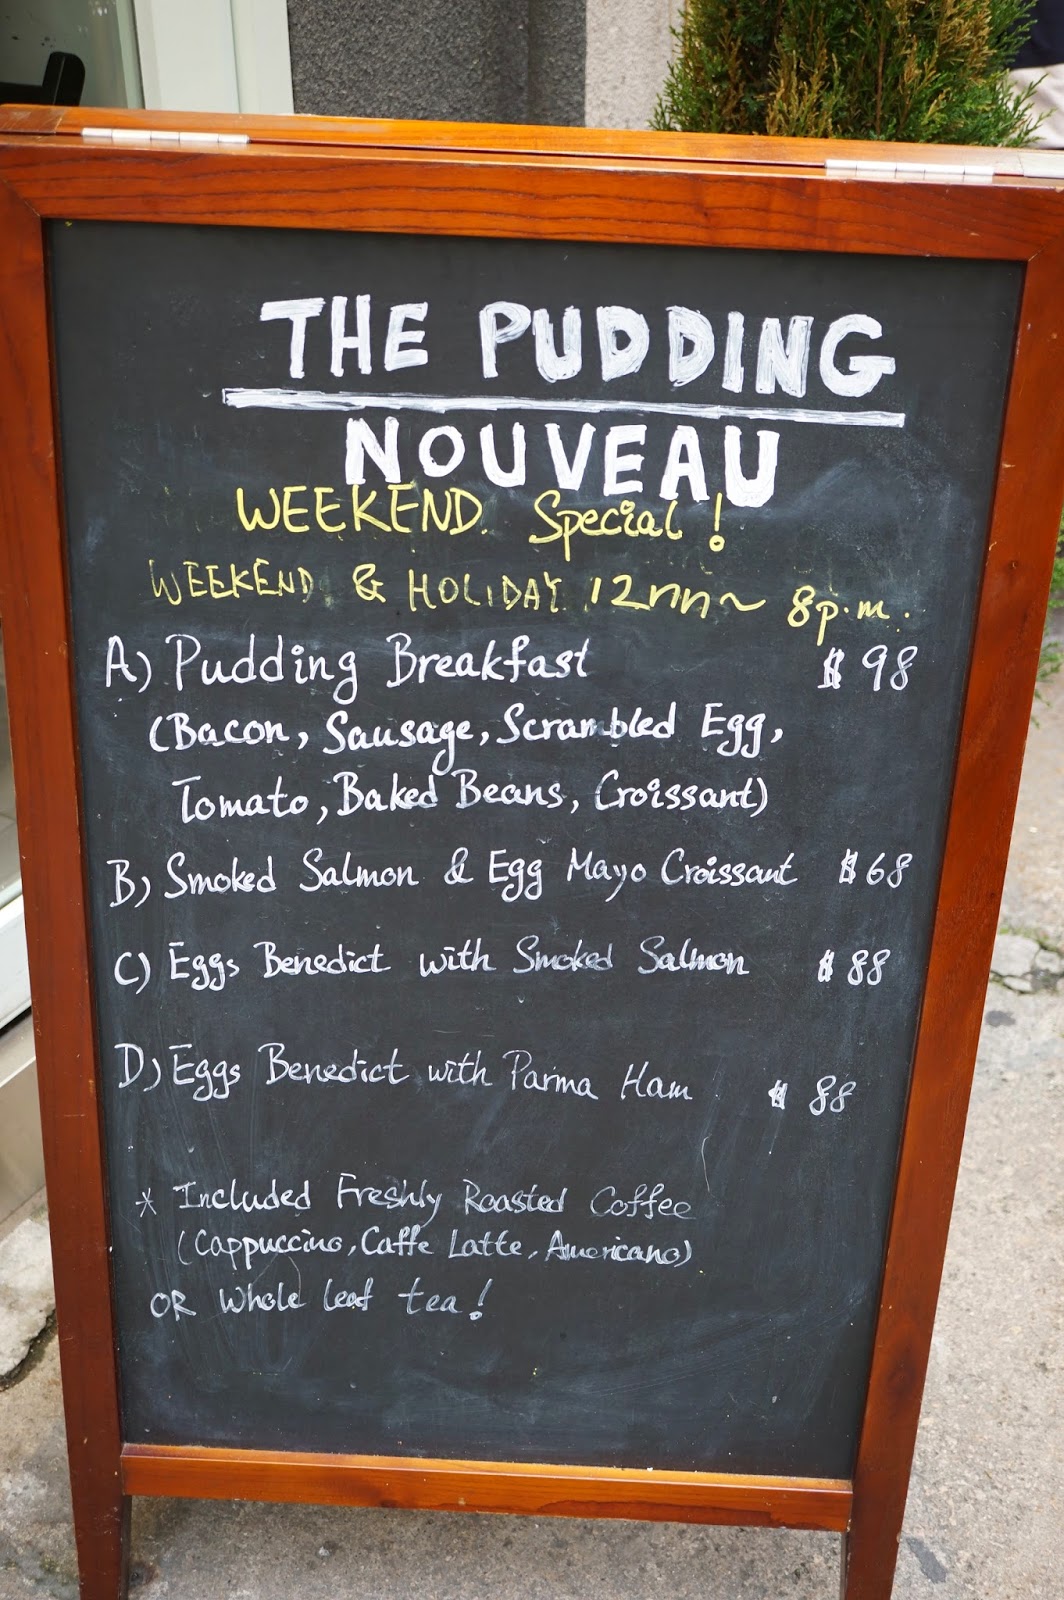 THE PUDDING
NOUVEAU
WEEKEND. Special!
WEEKEND & HOLIDAY 12nn~ 8p.m.
A) Pudding Breakfast $98
(Bacon, Sausage, Scrambled Egg,
Tomato, Baked Beans, Croissant)
B) Smoked Salmon & Egg Mayo Croissant $68
C) Eggs Benedict with Smoked Salmon $88
D) Eggs Benedict with Parma Ham $88
* Included Freshly Roasted Coffee
(Cappuccino, Caffe Latte, Americano)
OR Whole leaf tea!